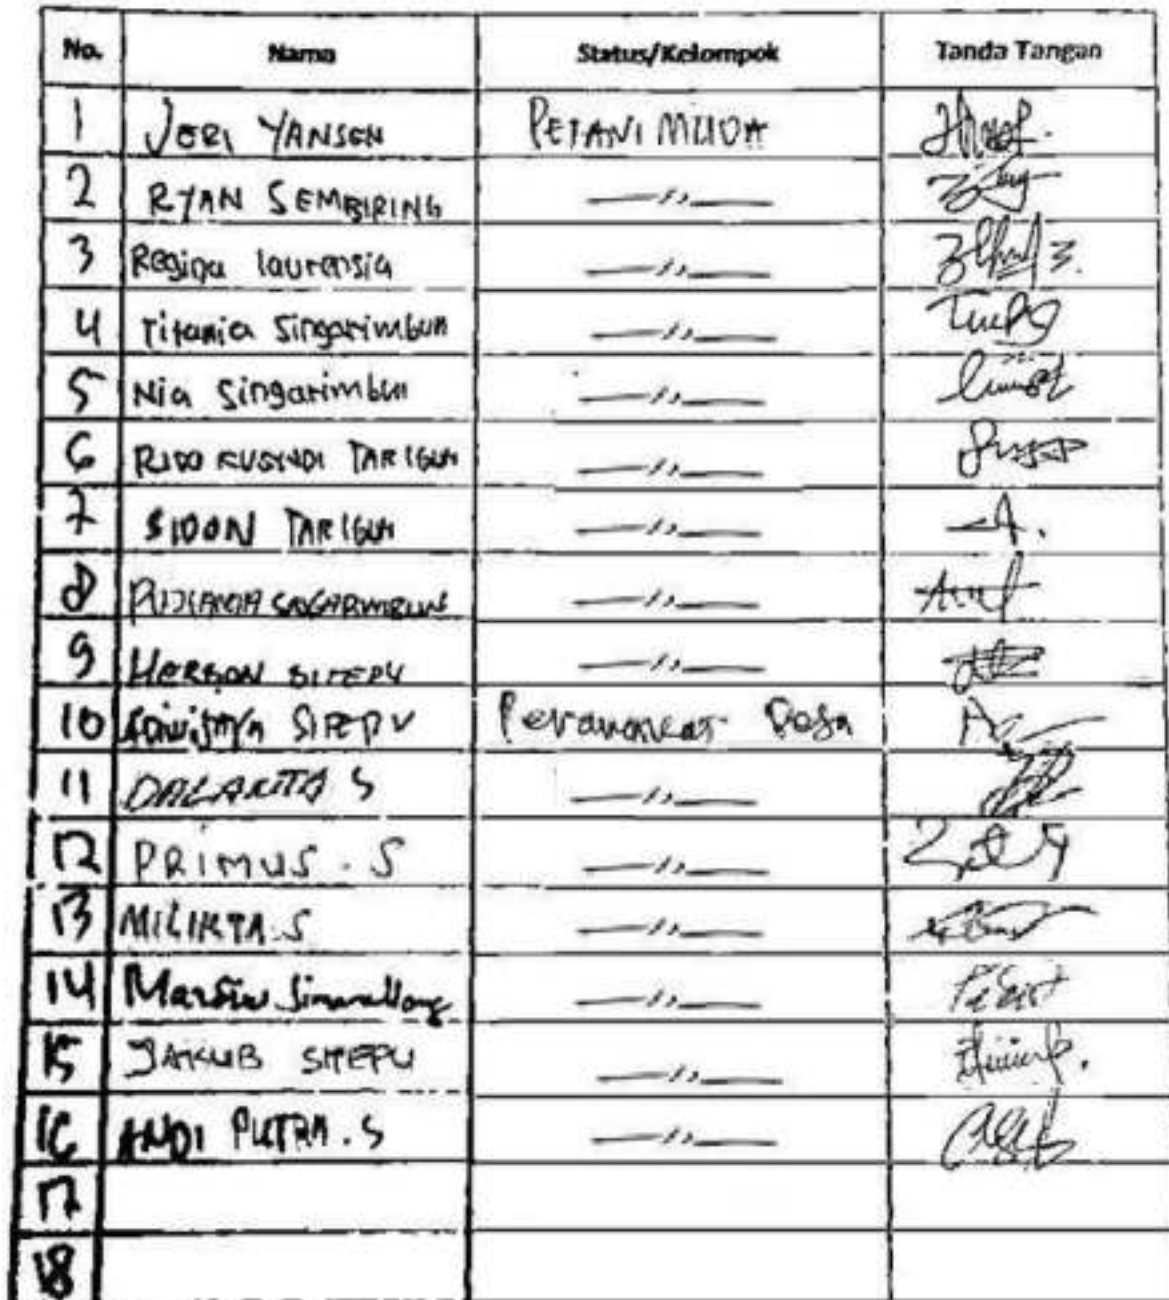 No. Nama Status/Kelompok Tanda Tangan
1 JERI YANSEN PETANI MUDA
2 RYAN SEMBIRING —〃—
3 Regina laurensia —〃—
4 Titania Singarimbun —〃—
5 Nia Singarimbun —〃—
6 RIDO KUSNDI TARIGAN —〃—
7 SIDON TARIGAN —〃—
8 —〃—
9 HERSON SITEPU —〃—
10 SITEPU Perangkat Desa
11 DALANTA S —〃—
12 PRIMUS . S —〃—
13 MILIKTA . S —〃—
14 —〃—
15 JAKUB SITEPU —〃—
16 ANDI PUTRA . S —〃—
17
18